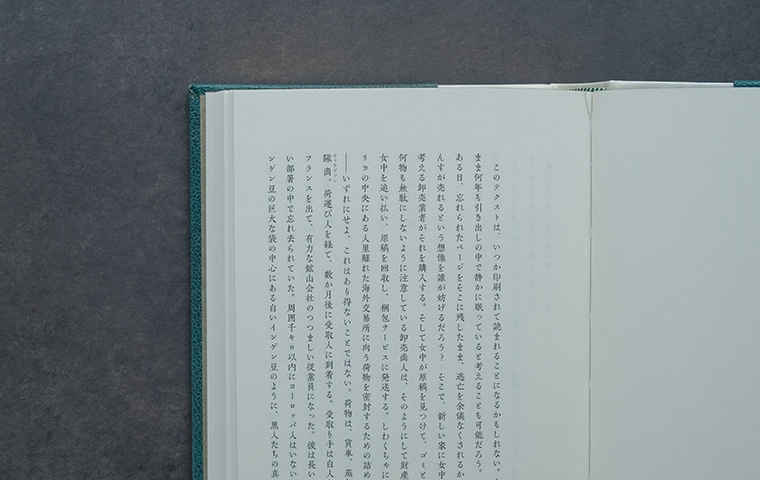 このテクストは、いつか印刷されて読まれることになるかもしれない。
まま何年も引き出しの中で静かに眠っていると考えることも可能だろう。
ある日、忘れられたページをそこに残したまま、逃亡を余儀なくされるか
んすが売れるという想像を誰が妨げるだろう？　そこで、新しい家に女中
考える卸売業者がそれを購入する。そして女中が原稿を見つけて、ゴミと
何物も無駄にしないように注意している卸売商人は、そのようにして財産
女中を追い払い、原稿を回収し、梱包サービスに発送する。しわくちゃに
リカの中央にある人里離れた海外交易所に向う荷物を密封するための詰め
──いずれにせよ、これはあり得ないことではない。荷物は、貨車、蒸
隊商、荷運び人を経て、数か月後に受取人に到着する。受取り手は白人
フランスを出て、有力な鉱山会社のつつましい従業員になった。彼は長い
い部署の中で忘れ去られていた。周囲千キロ以内にヨーロッパ人はいない
ンゲン豆の巨大な袋の中心にある白いインゲン豆のように、黒人たちの真